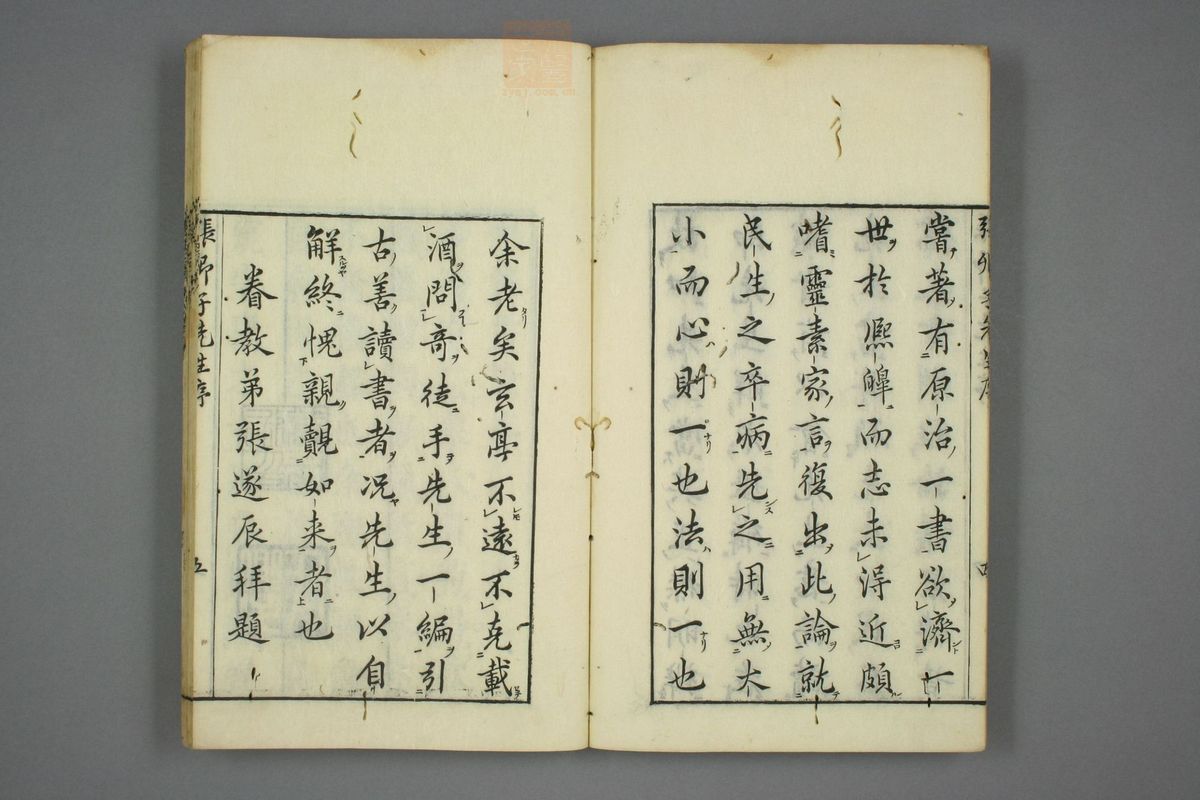 嘗著有原治一書欲濟一
世於熈皥而志未得近頗
嗜靈素家言復出此論就
民生之卒病先之用無大
小而心則一也法則一也
余老矣玄亭不遠不克載
酒問奇徒手先生一編引
古善讀書者况先生以自
解終愧親覿如来者也
眷教弟張遂辰拜題
張卿子先生序
五